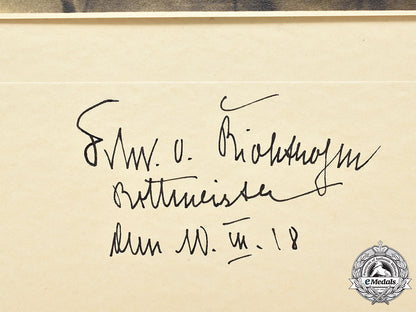 Frhr. v. Richthofen
Rittmeister
den 10. III. 18
eMedals